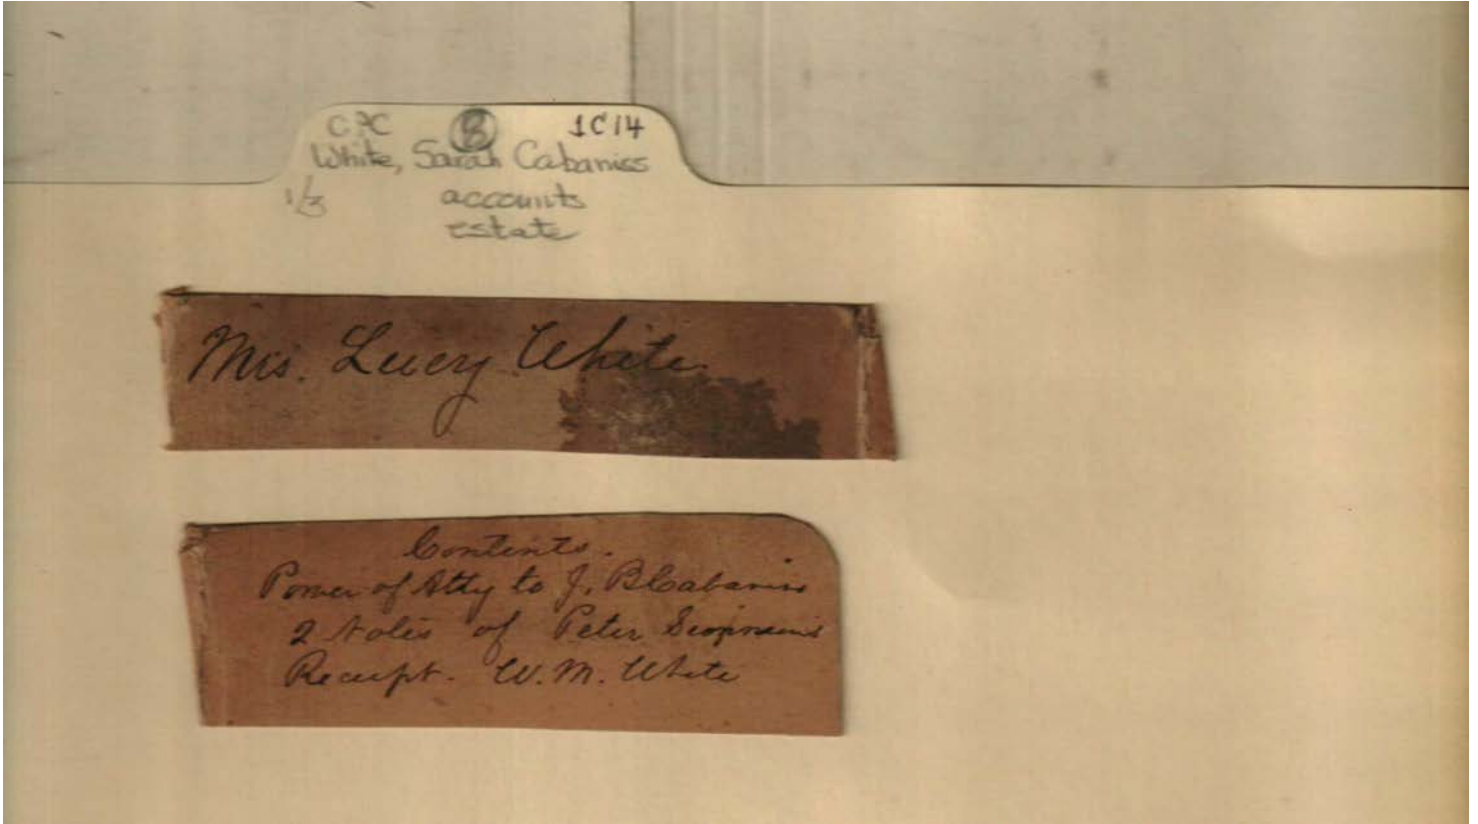 CPC (B) 1C14
White, Sarah Cabaniss
1/3 accounts
estate
Mrs. Lucy White
Contents.
Power of Atty to J. B Cabaniss
2 Notes of Peter
Receipt. W. M. White